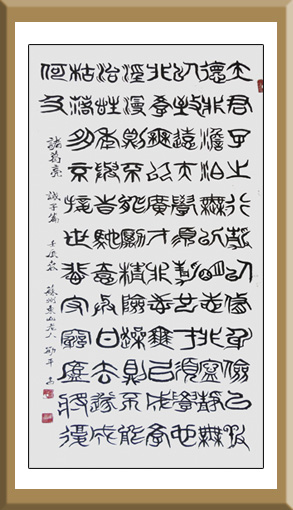 夫君子之行靜以修身儉以養
德非澹泊無以明志非寧靜無
以致遠夫學須靜也才須學也
非學無以廣才非志無以成學
淫慢則不能勵精險躁則不能
冶性年與時馳意與日去遂成
枯落多不接世悲守窮廬將復
何及
諸葛亮 誡子篇 壬辰歲 蘇州東山老人